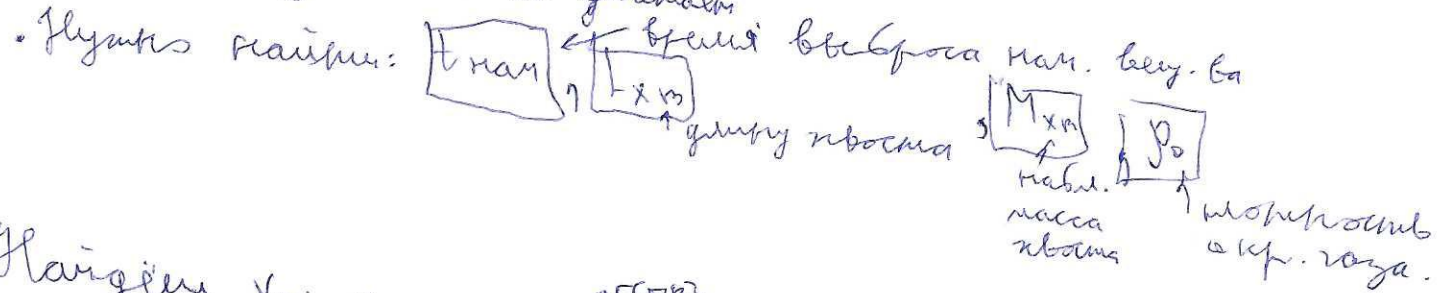 • Нужно найти: tнач ← время выброса нач. вещ-ва
, Lхв ↑ длину хвоста , Mхв , ρ0
набл. масса хвоста
↑ плотность окр. газа.
Найдём